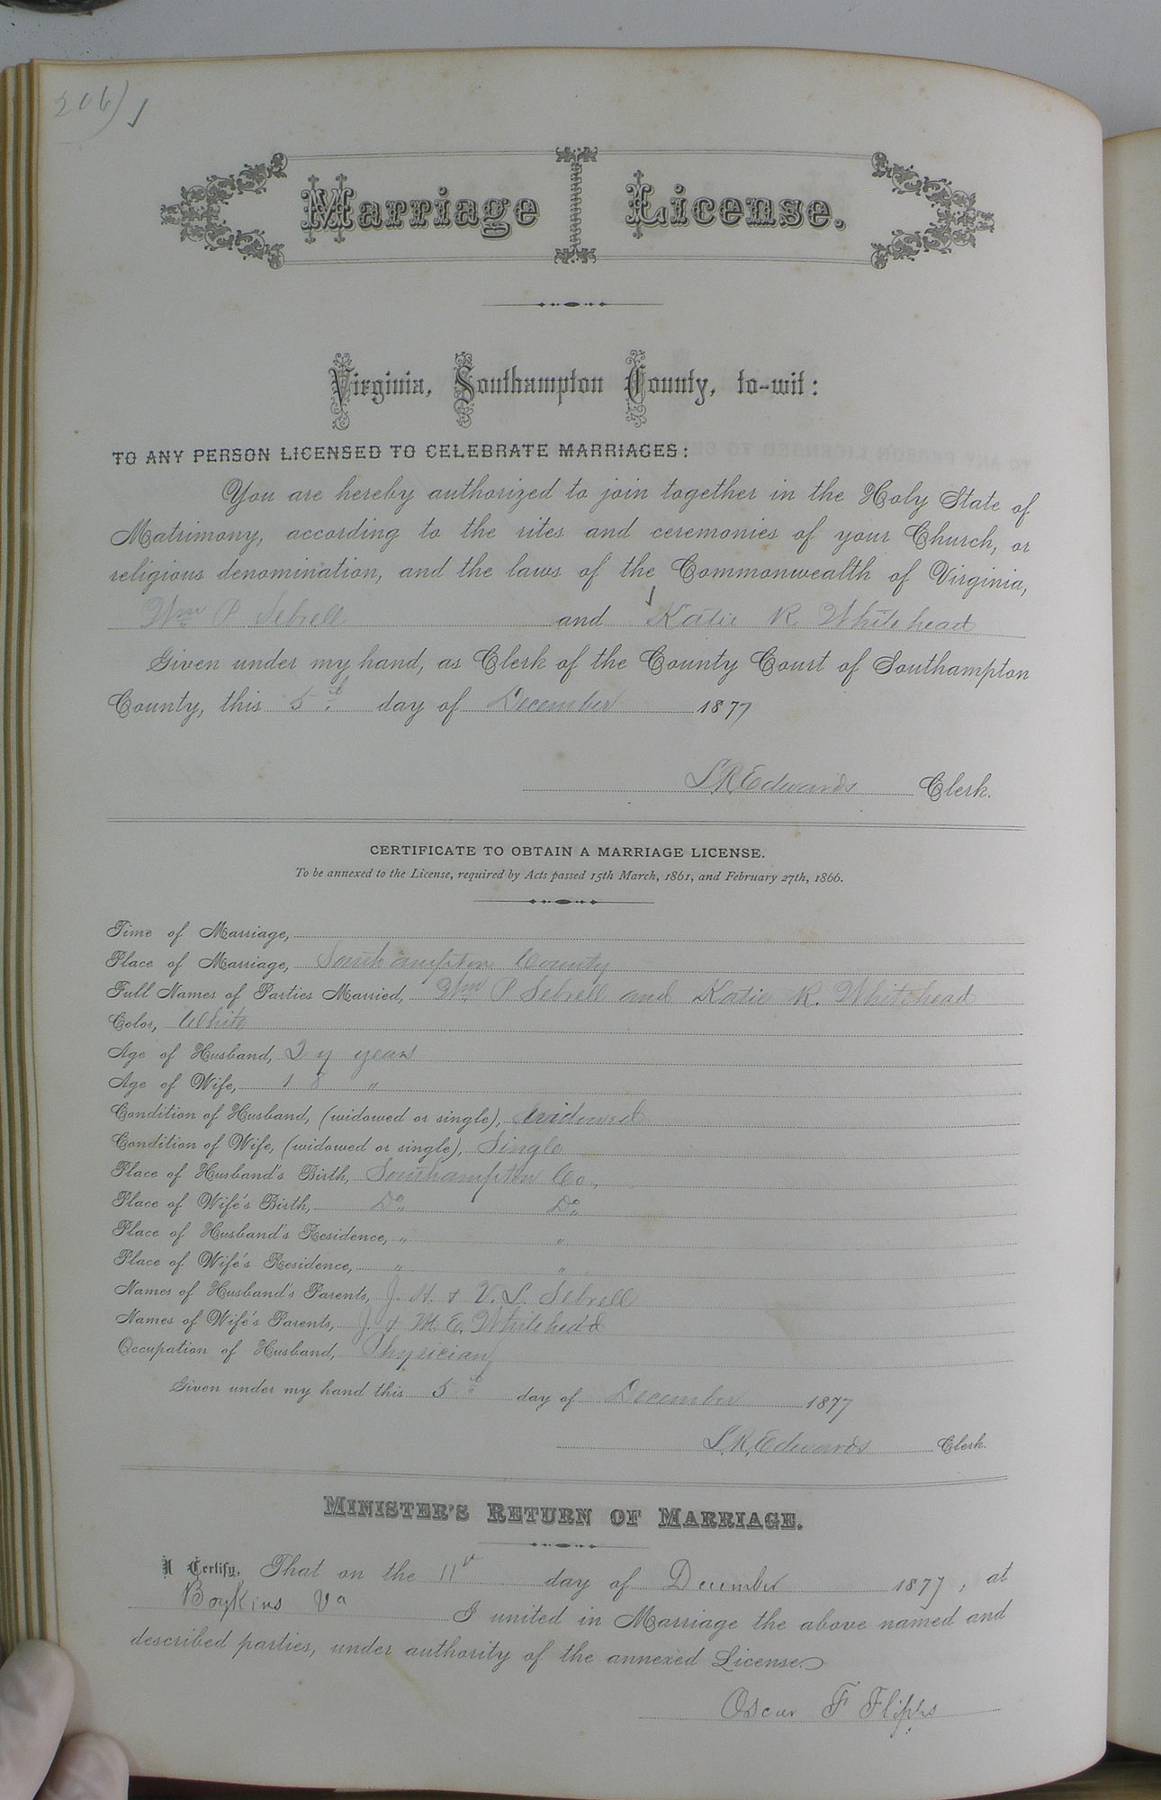 206)
Marriage License.
Virginia, Southampton County, to-wit:
TO ANY PERSON LICENSED TO CELEBRATE MARRIAGES:
You are hereby authorized to join together in the Holy State of
Matrimony, according to the rites and ceremonies of your Church, or
religious denomination, and the laws of the Commonwealth of Virginia,
Wm P Sebrell and Katie R. Whitehead
Given under my hand, as Clerk of the County Court of Southampton
County, this 5th day of December 1877
L R Edwards Clerk.
CERTIFICATE TO OBTAIN A MARRIAGE LICENSE.
To be annexed to the License, required by Acts passed 15th March, 1861, and February 27th, 1866.
Time of Marriage,
Place of Marriage, Southampton County
Full Names of Parties Married, Wm P Sebrell and Katie R. Whitehead
Color, White
Age of Husband, years
Age of Wife, 18 "
Condition of Husband, (widowed or single), widowed
Condition of Wife, (widowed or single), Single
Place of Husband's Birth, Southampton Co.
Place of Wife's Birth, Do Do
Place of Husband's Residence, " "
Place of Wife's Residence, " "
Names of Husband's Parents, J. H. & V. L. Sebrell
Names of Wife's Parents, J. & M. E. Whitehead
Occupation of Husband, Physician
Given under my hand this 5th day of December 1877
L. R. Edwards Clerk.
MINISTER'S RETURN OF MARRIAGE.
I Certify, That on the 11th day of December 1877, at
Boykins Va I united in Marriage the above named and
described parties, under authority of the annexed License.
Oscar F Flipps